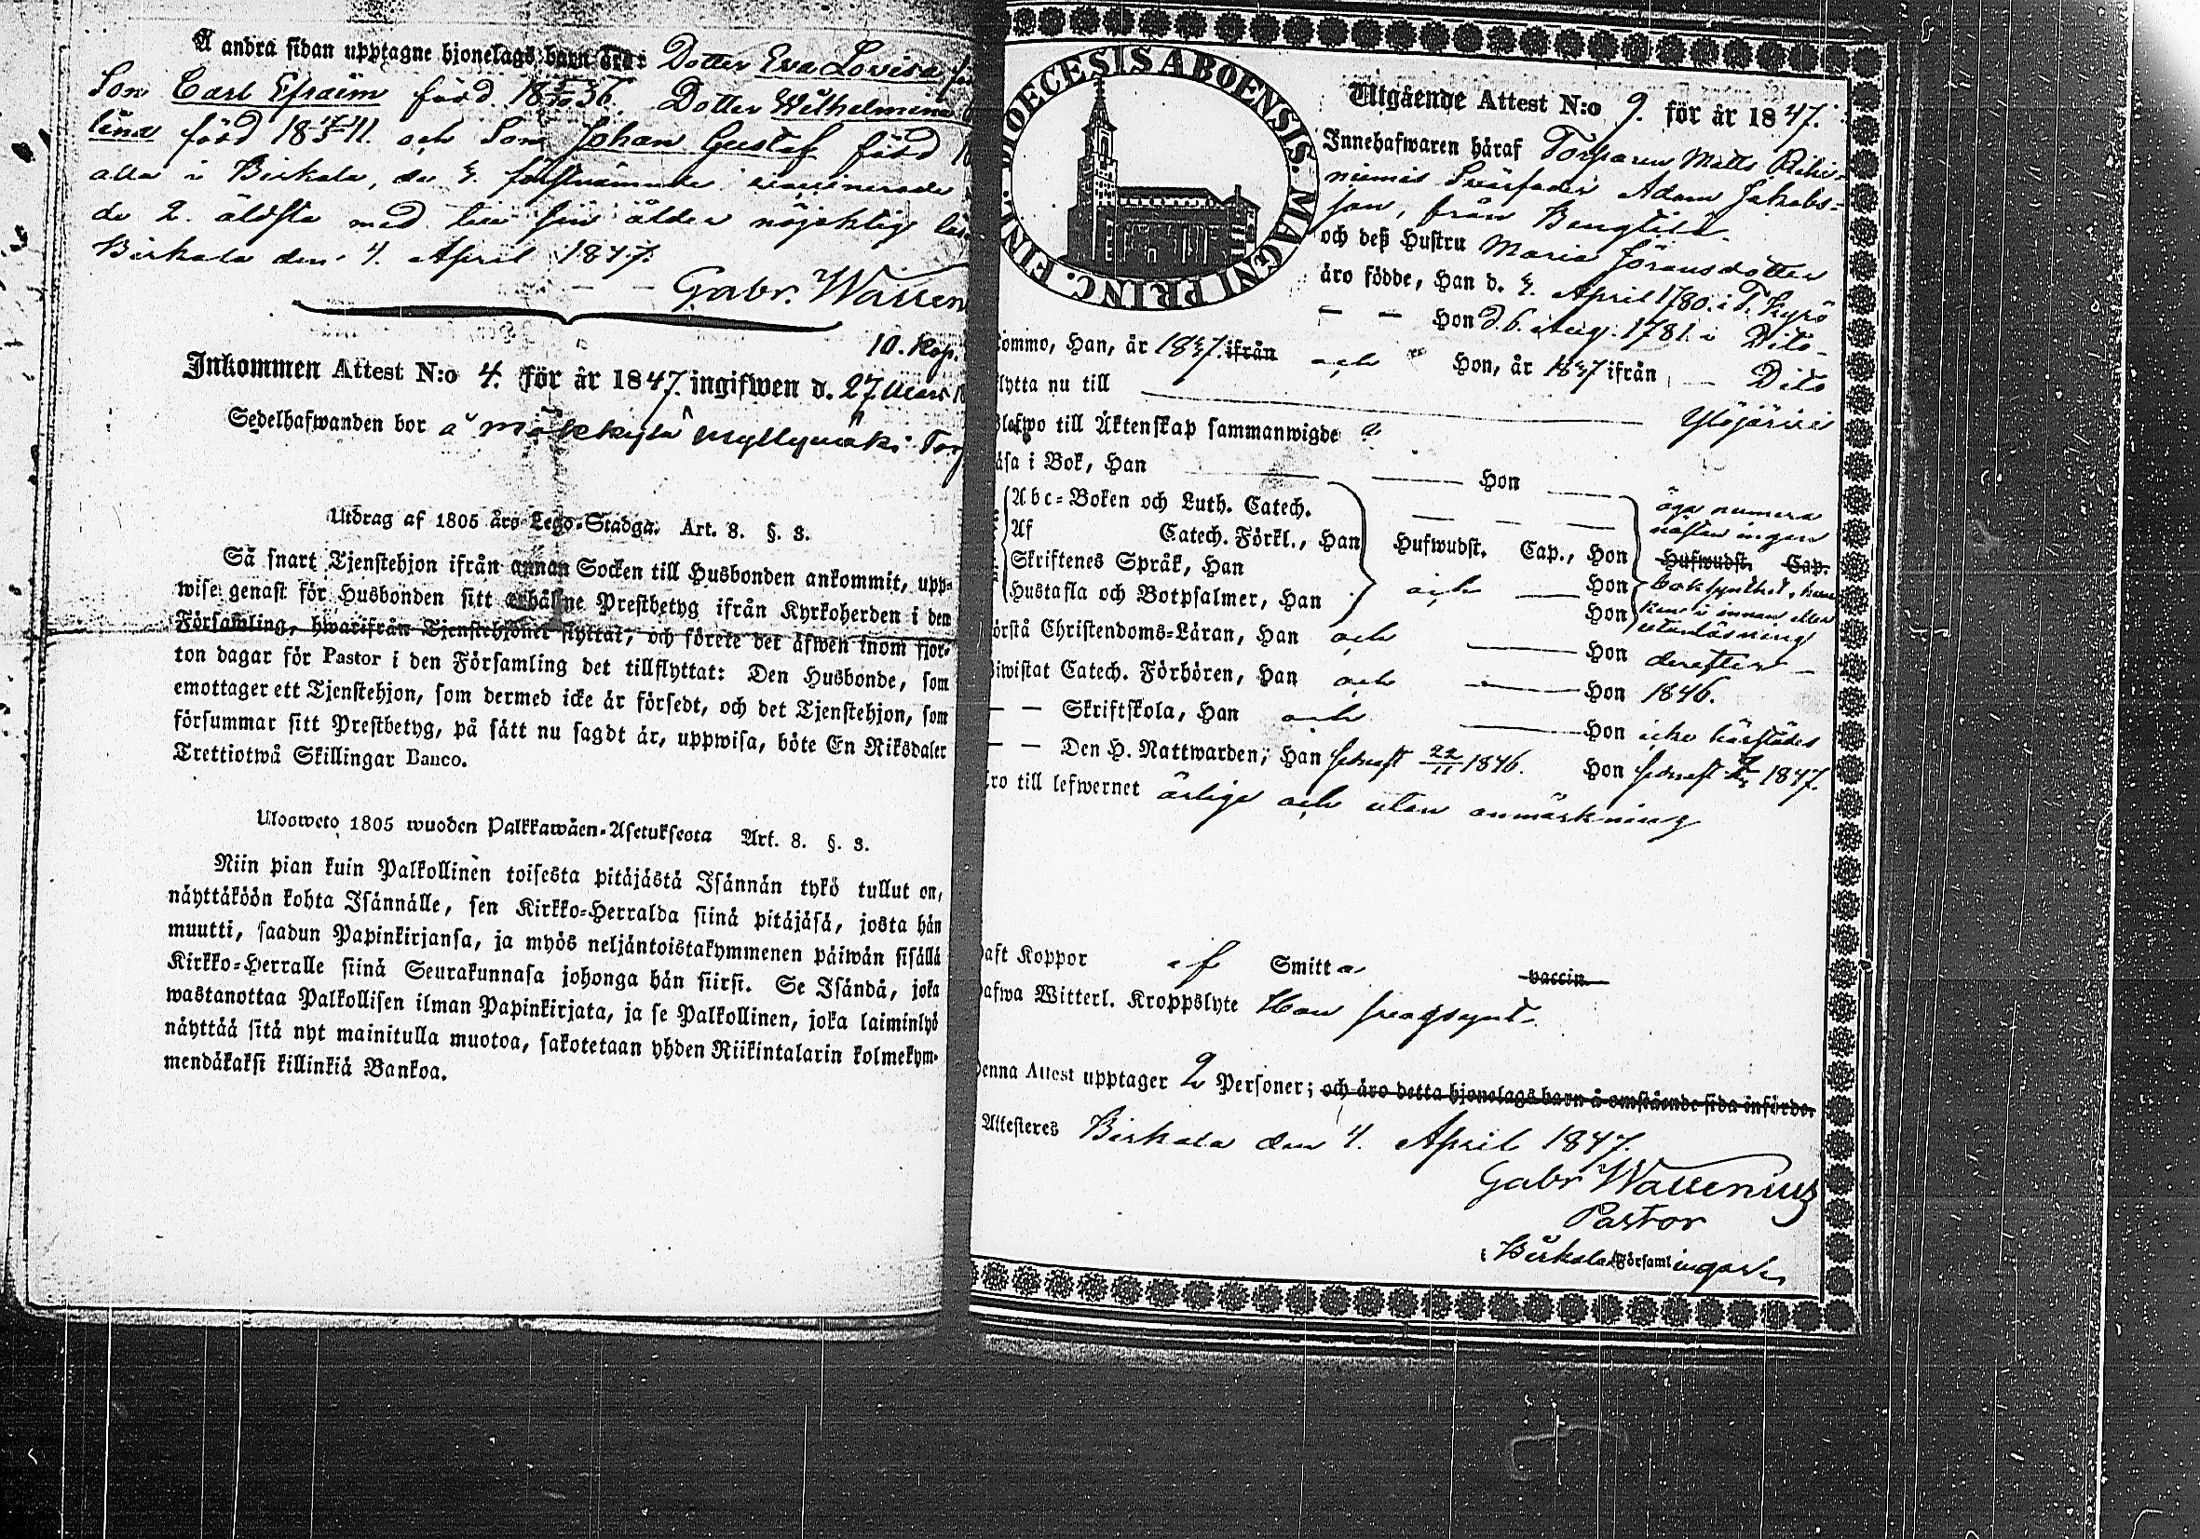 Å andra sidan upptagne hjonelags barn äro: Dotter Eva Lovisa
Son Carl Efraim född 18 36. Dotter Wilhelmina
lina född 18 41. och Son Johan Gustaf född
alla i Birkala, de 3. förstnämnde vaccinerade
de 2. äldsta med sin ålder nöjaktig
Birkala den 4. April 1847.
Gabr. Wallen
10. Kop.
Inkommen Attest N:o 4. för år 1847. ingifwen d. 27 Mars
Sedelhafwanden bor å Mäkkylä Myllymäki Torp
Utdrag af 1805 års Lego-Stadga. Art. 8. §. 3.
Så snart Tjenstehjon ifrån annan Socken till Husbonden ankommit, upp-
wise genast för Husbonden sitt erhållne Prestbetyg ifrån Kyrkoherden i den
Församling, hwarifrån Tjenstehjonet flyttat, och förete det äfwen inom fjor-
ton dagar för Pastor i den Församling det tillflyttat: Den Husbonde, som
emottager ett Tjenstehjon, som dermed icke är försedt, och det Tjenstehjon, som
försummar sitt Prestbetyg, på sätt nu sagdt är, uppwisa, böte En Riksdaler
Trettiotwå Skillingar Banco.
Ulosweto 1805 wuoden Palkkawäen-Asetuksesta Art. 8. §. 3.
Niin pian kuin Palkollinen toisesta pitäjästä Isännän tykö tullut on,
näyttäköön kohta Isännälle, sen Kirkko-Herralda siinä pitäjäsä, josta hän
muutti, saadun Papinkirjansa, ja myös neljäntoistakymmenen päiwän sisällä
Kirkko-Herralle siinä Seurakunnasa johonga hän siirsi. Se Isändä, joka
wastanottaa Palkollisen ilman Papinkirjata, ja se Palkollinen, joka laiminlyö
näyttää sitä nyt mainitulla muotoa, sakotetaan yhden Riikintalarin kolmekym-
mendäkaksi killinkiä Bankoa.
DIOECESIS ABOENSIS. MAGNI PRINC. FINL.
Utgående Attest N:o 9. för år 1847.
Innehafwaren häraf Torparen Matts Rihi-
niemis Svärfader Adam Jakobs-
son, från Bengtilä
och deß Hustru Maria Jöransdotter
äro födde, Han d. 3. April 1780. i T. Kyrö
— — Hon d. 6. Aug. 1781. i Dito
ommo, Han, år 1837. ifrån och Hon, år 1837 ifrån — Dito
lytta nu till Ylöjärvi
lefwo till Äktenskap sammanwigde
äsa i Bok, Han — Hon — äga numera
Abc-Boken och Luth. Catech. nästan ingen
Af Catech. Förkl., Han Hufwudst. Cap., Hon Hufwudst. Cap.
Skriftenes Språk, Han och — Hon
Hustafla och Botpsalmer, Han Hon utanläsning
örstå Christendoms-Läran, Han och — Hon derefter —
iwistat Catech. Förhören, Han och — Hon 1846.
— — Skriftskola, Han och — Hon icke härstädes
— — Den H. Nattwarden, Han senast 22/11 1846. Hon senast 1847.
ro till lefwernet ärliga och utan anmärkning
aft Koppor af Smitta vaccin.
afwa Witterl. Kroppslyte Hon svagsynt.
Denna Attest upptager 2 Personer; och äro detta hjonelags barn å omstående sida införde.
Attesteres Birkala den 4. April 1847.
Gabr Wallenius
Pastor
Birkala Församlingar